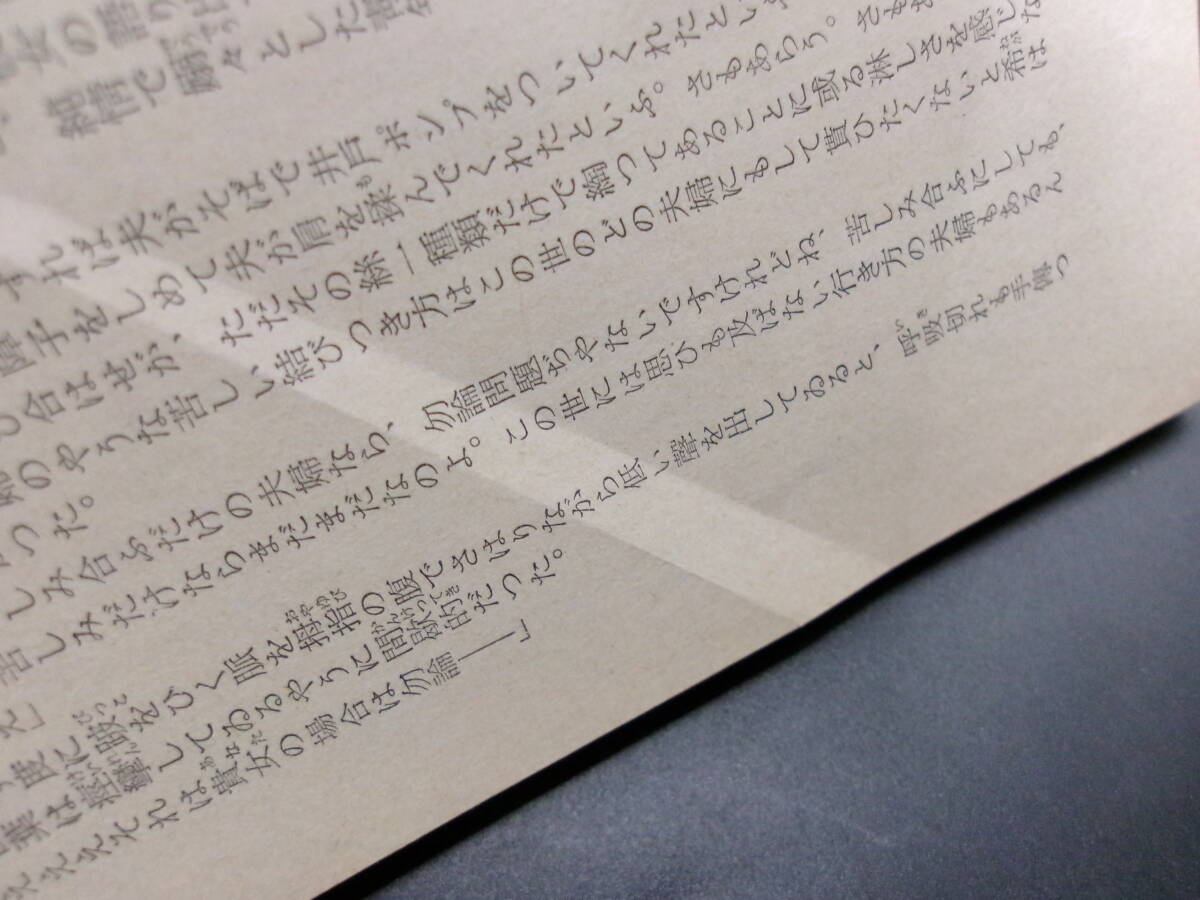 女の語り
純情で爾々とした
すれば夫がそばで井戸ポンプをついてくれたとい
障子をしめて夫が肩を揉んでくれたといふ。さもあらう。さもあ
ひ合はせが、ただその綜一種類だけで綯つてあることに或る淋しさを感じな
婦のやうな苦しい結びつき方はこの世のどの夫婦にもして貰ひたくないと希は
つた。
しみ合ふだけの夫婦なら、勿論問題ぢやないですけれどね、苦しみ合ふにしても、
苦しみだけならまだまだなのよ。この世には思ひも及ばない行き方の夫婦もあるん
え」
度に跛をひく脈を拇指の腹でさはりながら低い聲を出してゐると、呼吸切れも手傳つ
葉は痙攣してゐるやうに間歇的だつた。
えええそれは貴女の場合は勿論――」